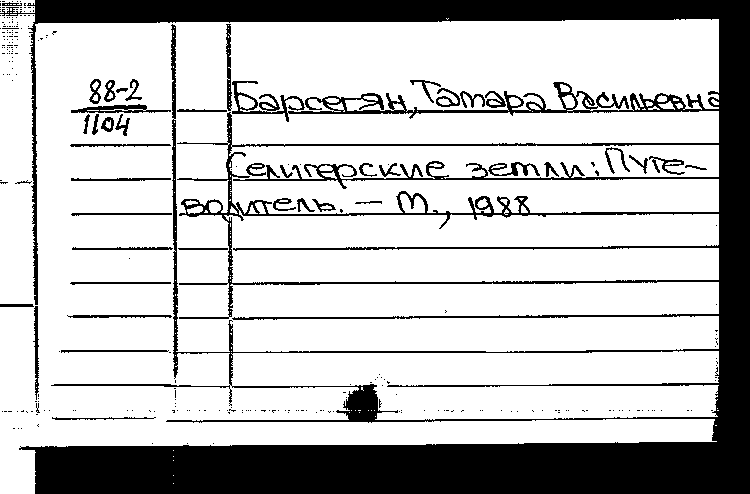 88-2
1104
Барсегян, Тамара Васильевна
Селигерские земли: Путе-
водитель. — М., 1988.